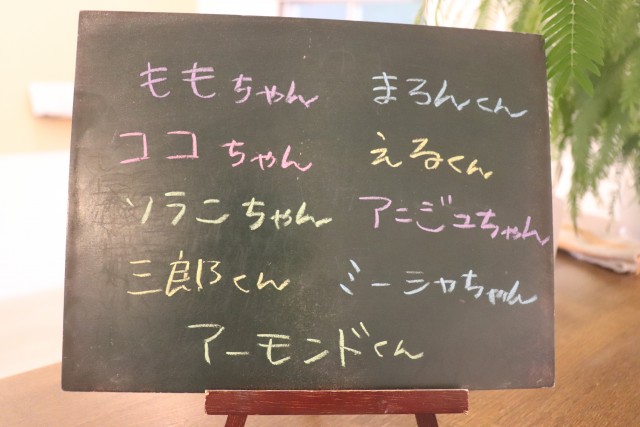 ももちゃん まろんくん
ココちゃん えるくん
ソラニちゃん アニジュちゃん
三郎くん ミーシャちゃん
アーモンドくん